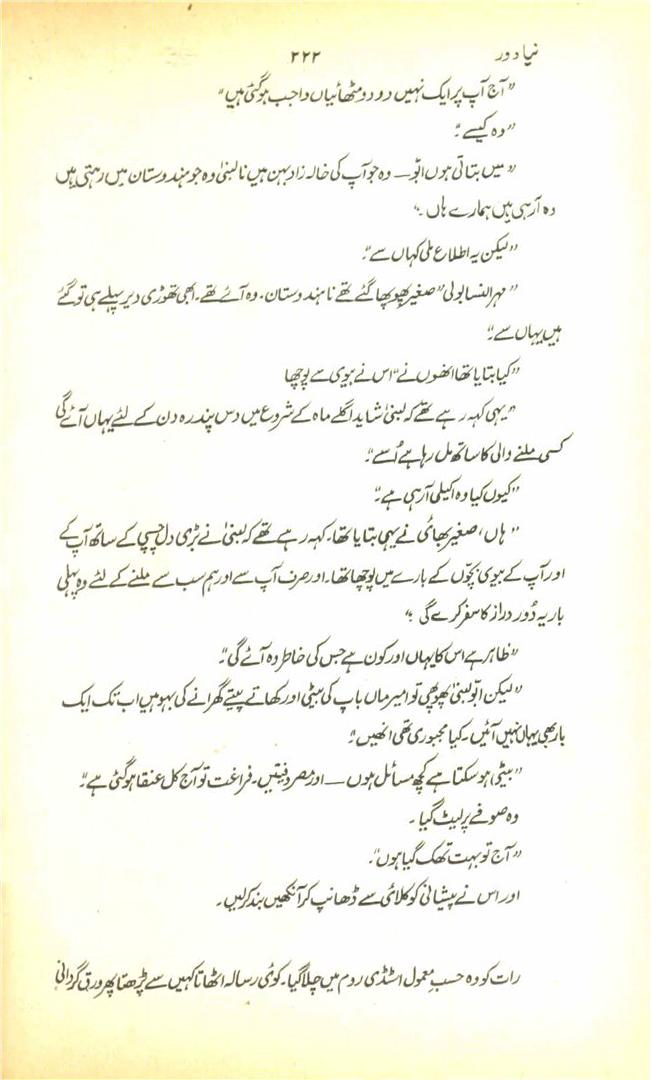 نیا دور ۲۲۲
"آج آپ پر ایک نہیں دو دو مٹھائیاں واجب ہو گئی ہیں"
"وہ کیسے"۔
"میں بتاتی ہوں ابّو — وہ جو آپ کی خالہ زاد بہن ہیں نا لبنیٰ وہ جو ہندوستان میں رہتی ہیں
وہ آ رہی ہیں ہمارے ہاں۔"
"لیکن یہ اطلاع ملی کہاں سے"۔
"مہرالنسا بولی" صغیر پھوپھا گئے تھے نا ہندوستان۔ وہ آئے تھے۔ ابھی تھوڑی دیر پہلے ہی تو گئے
ہیں یہاں سے"۔
"کیا بتایا تھا انھوں نے" اس نے بیوی سے پوچھا
"یہی کہہ رہے تھے کہ لبنیٰ شاید اگلے ماہ کے شروع میں دس پندرہ دن کے لئے یہاں آئے گی
کسی ملنے والی کا ساتھ مل رہا ہے اُسے"۔
"کیوں کیا وہ اکیلی آ رہی ہے"۔
"ہاں، صغیر بھائی نے یہی بتایا تھا۔ کہہ رہے تھے کہ لبنیٰ نے بڑی دل چسپی کے ساتھ آپ کے
اور آپ کے بیوی بچّوں کے بارے میں پوچھا تھا۔ اور صرف آپ سے اور ہم سب سے ملنے کے لئے وہ پہلی
بار یہ دُور دراز کا سفر کرے گی"
"ظاہر ہے اس کا یہاں اور کون ہے جس کی خاطر وہ آئے گی"۔
"لیکن ابّو لبنیٰ پھوپھی تو امیر ماں باپ کی بیٹی اور کھاتے پیتے گھرانے کی بہو ہیں اب تک ایک
بار بھی یہاں نہیں آئیں۔ کیا مجبوری تھی انھیں"۔
"بیٹی ہو سکتا ہے کچھ مسائل ہوں — اور مصروفیتیں۔ فراغت تو آج کل عنقا ہو گئی ہے"۔
وہ صوفے پر لیٹ گیا۔
"آج تو بہت تھک گیا ہوں"۔
اور اس نے پیشانی کو کلائی سے ڈھانپ کر آنکھیں بند کر لیں۔
رات کو وہ حسبِ معمول اسٹڈی روم میں چلا گیا۔ کوئی رسالہ اٹھاتا کہیں سے پڑھتا پھر ورق گردانی